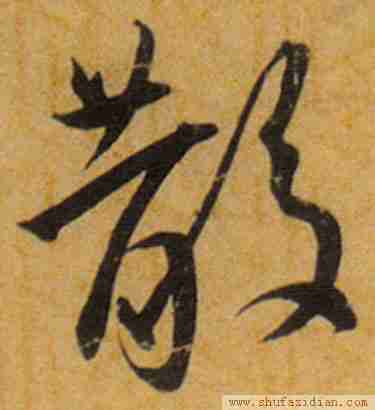 散
www.shufazidian.com